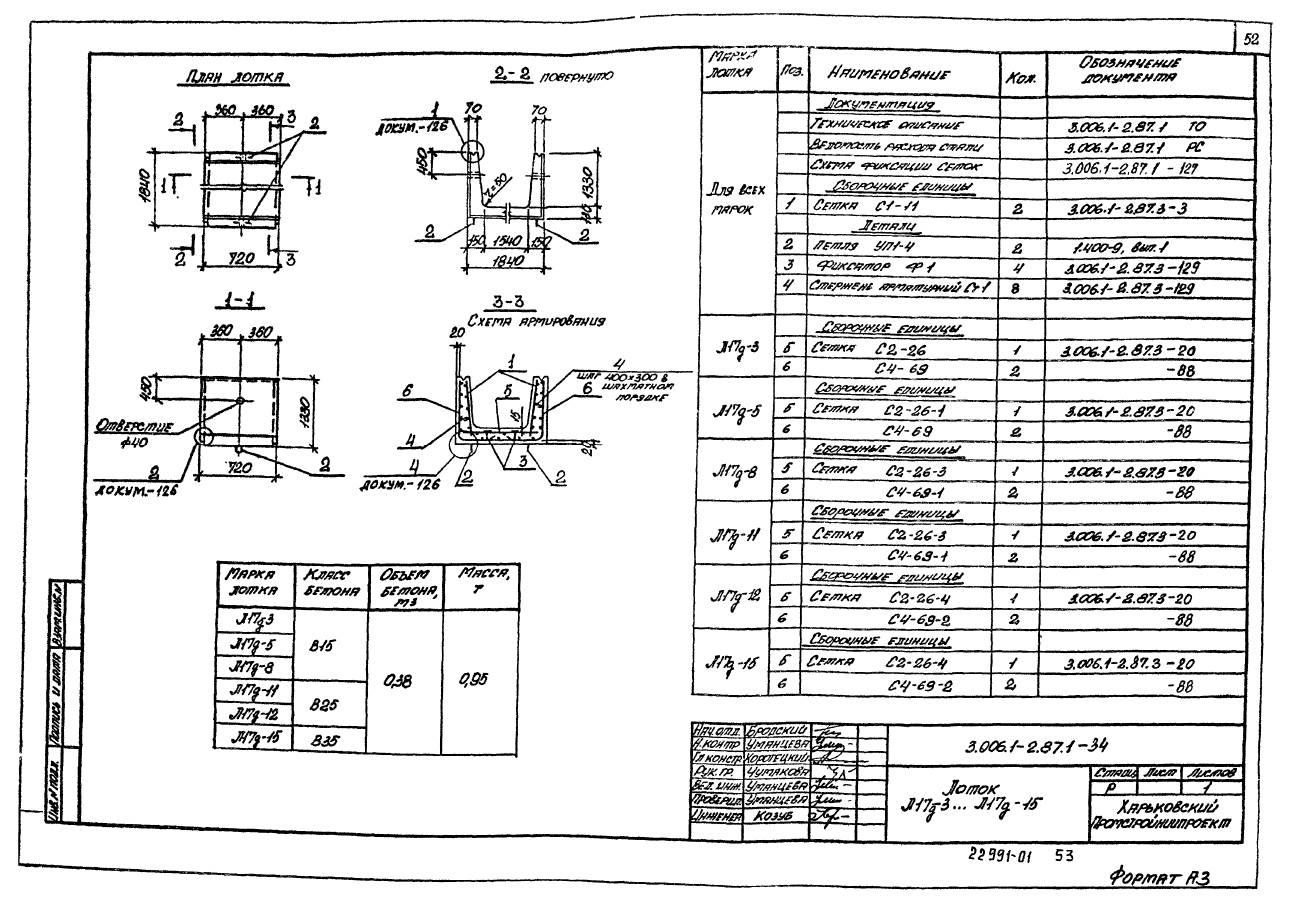 52
План лотка
360 360
2 3
2
1840
1 1
2 3
720
2-2 повернуто
1
докум.-126
70 70
450
r=50
1330
130
2 2
150 1540 150
1840
1-1
360 360
450
1330
Отверстие
ф40
2
докум.-126
720
2
3-3
Схема армирования
20
1
4
шаг 400×300 в
шахматном
порядке
5
6 6
15
4
4
докум.-126
2 3 2
Марка лотка Класс бетона Объем бетона, м3 Масса, т
Л17д-3
Л17д-5 В15
Л17д-8
0,38 0,95
Л17д-11
Л17д-12 В25
Л17д-15 В35
Марка лотка Поз. Наименование Кол. Обозначение документа
Для всех марок
Документация
Техническое описание 3.006.1-2.87.1 ТО
Ведомость расхода стали 3.006.1-2.87.1 РС
Схема фиксации сеток 3.006.1-2.87.1 -127
Сборочные единицы
1 Сетка С1-11 2 3.006.1-2.87.3-3
Детали
2 Петля УП1-4 2 1.400-9, вып.1
3 Фиксатор Ф1 4 3.006.1-2.87.3-129
4 Стержень арматурный Ст1 8 3.006.1-2.87.3-129
Сборочные единицы
Л17д-3 5 Сетка С2-26 1 3.006.1-2.87.3-20
6 С4-69 2 -88
Сборочные единицы
Л17д-5 5 Сетка С2-26-1 1 3.006.1-2.87.3-20
6 С4-69 2 -88
Сборочные единицы
Л17д-8 5 Сетка С2-26-3 1 3.006.1-2.87.3-20
6 С4-69-1 2 -88
Сборочные единицы
Л17д-11 5 Сетка С2-26-3 1 3.006.1-2.87.3-20
6 С4-69-1 2 -88
Сборочные единицы
Л17д-12 5 Сетка С2-26-4 1 3.006.1-2.87.3-20
6 С4-69-2 2 -88
Сборочные единицы
Л17д-15 5 Сетка С2-26-4 1 3.006.1-2.87.3-20
6 С4-69-2 2 -88
Нач.отд. Бродский
Н.контр Уманцева
Гл.констр Коротецкий
Рук.гр. Чумакова
Вед.инж. Уманцева
Проверил Уманцева
Инженер Козуб
3.006.1-2.87.1-34
Лоток
Л17д-3... Л17д-15
Стадия Лист Листов
Р 1
Харьковский
Промстройниипроект
Взам.инв.№
Подпись и дата
Инв.№ подл.
22991-01 53
Формат А3